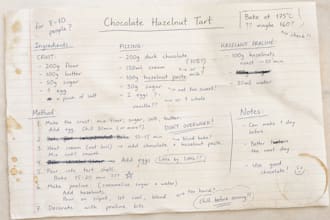 for 8-10 people?
Chocolate Hazelnut Tart
Bake at 175°C!
?? maybe 160?
Ingredients
CRUST
- 200g flour
- 100g butter
- 50g sugar
- 1 egg
- a pinch of salt
FILLING:
- 200g dark chocolate
- 150ml cream
- 100g hazelnut paste
- 30g sugar
- 2 eggs
vanilla??
HAZELNUT PRALINE:
- 100g hazelnuts
roast
10 min
- 20ml water
Method
1. Make the crust: mix flour, sugar, salt, butter.
Add egg. Chill 30min (or more?)
DON'T OVERWORK!
add chocolate + hazelnut paste.
Add eggs
Pour into tart shell.
Bake 15-20 min ???
6. Make praline (caramelise sugar + water)
Add hazelnuts.
Pour on
let cool,
too hard?
7. Decorate with praline bits
Chill before serving!!
Notes:
- Can make 1 day before
- Better
the next day
- Use good chocolate!